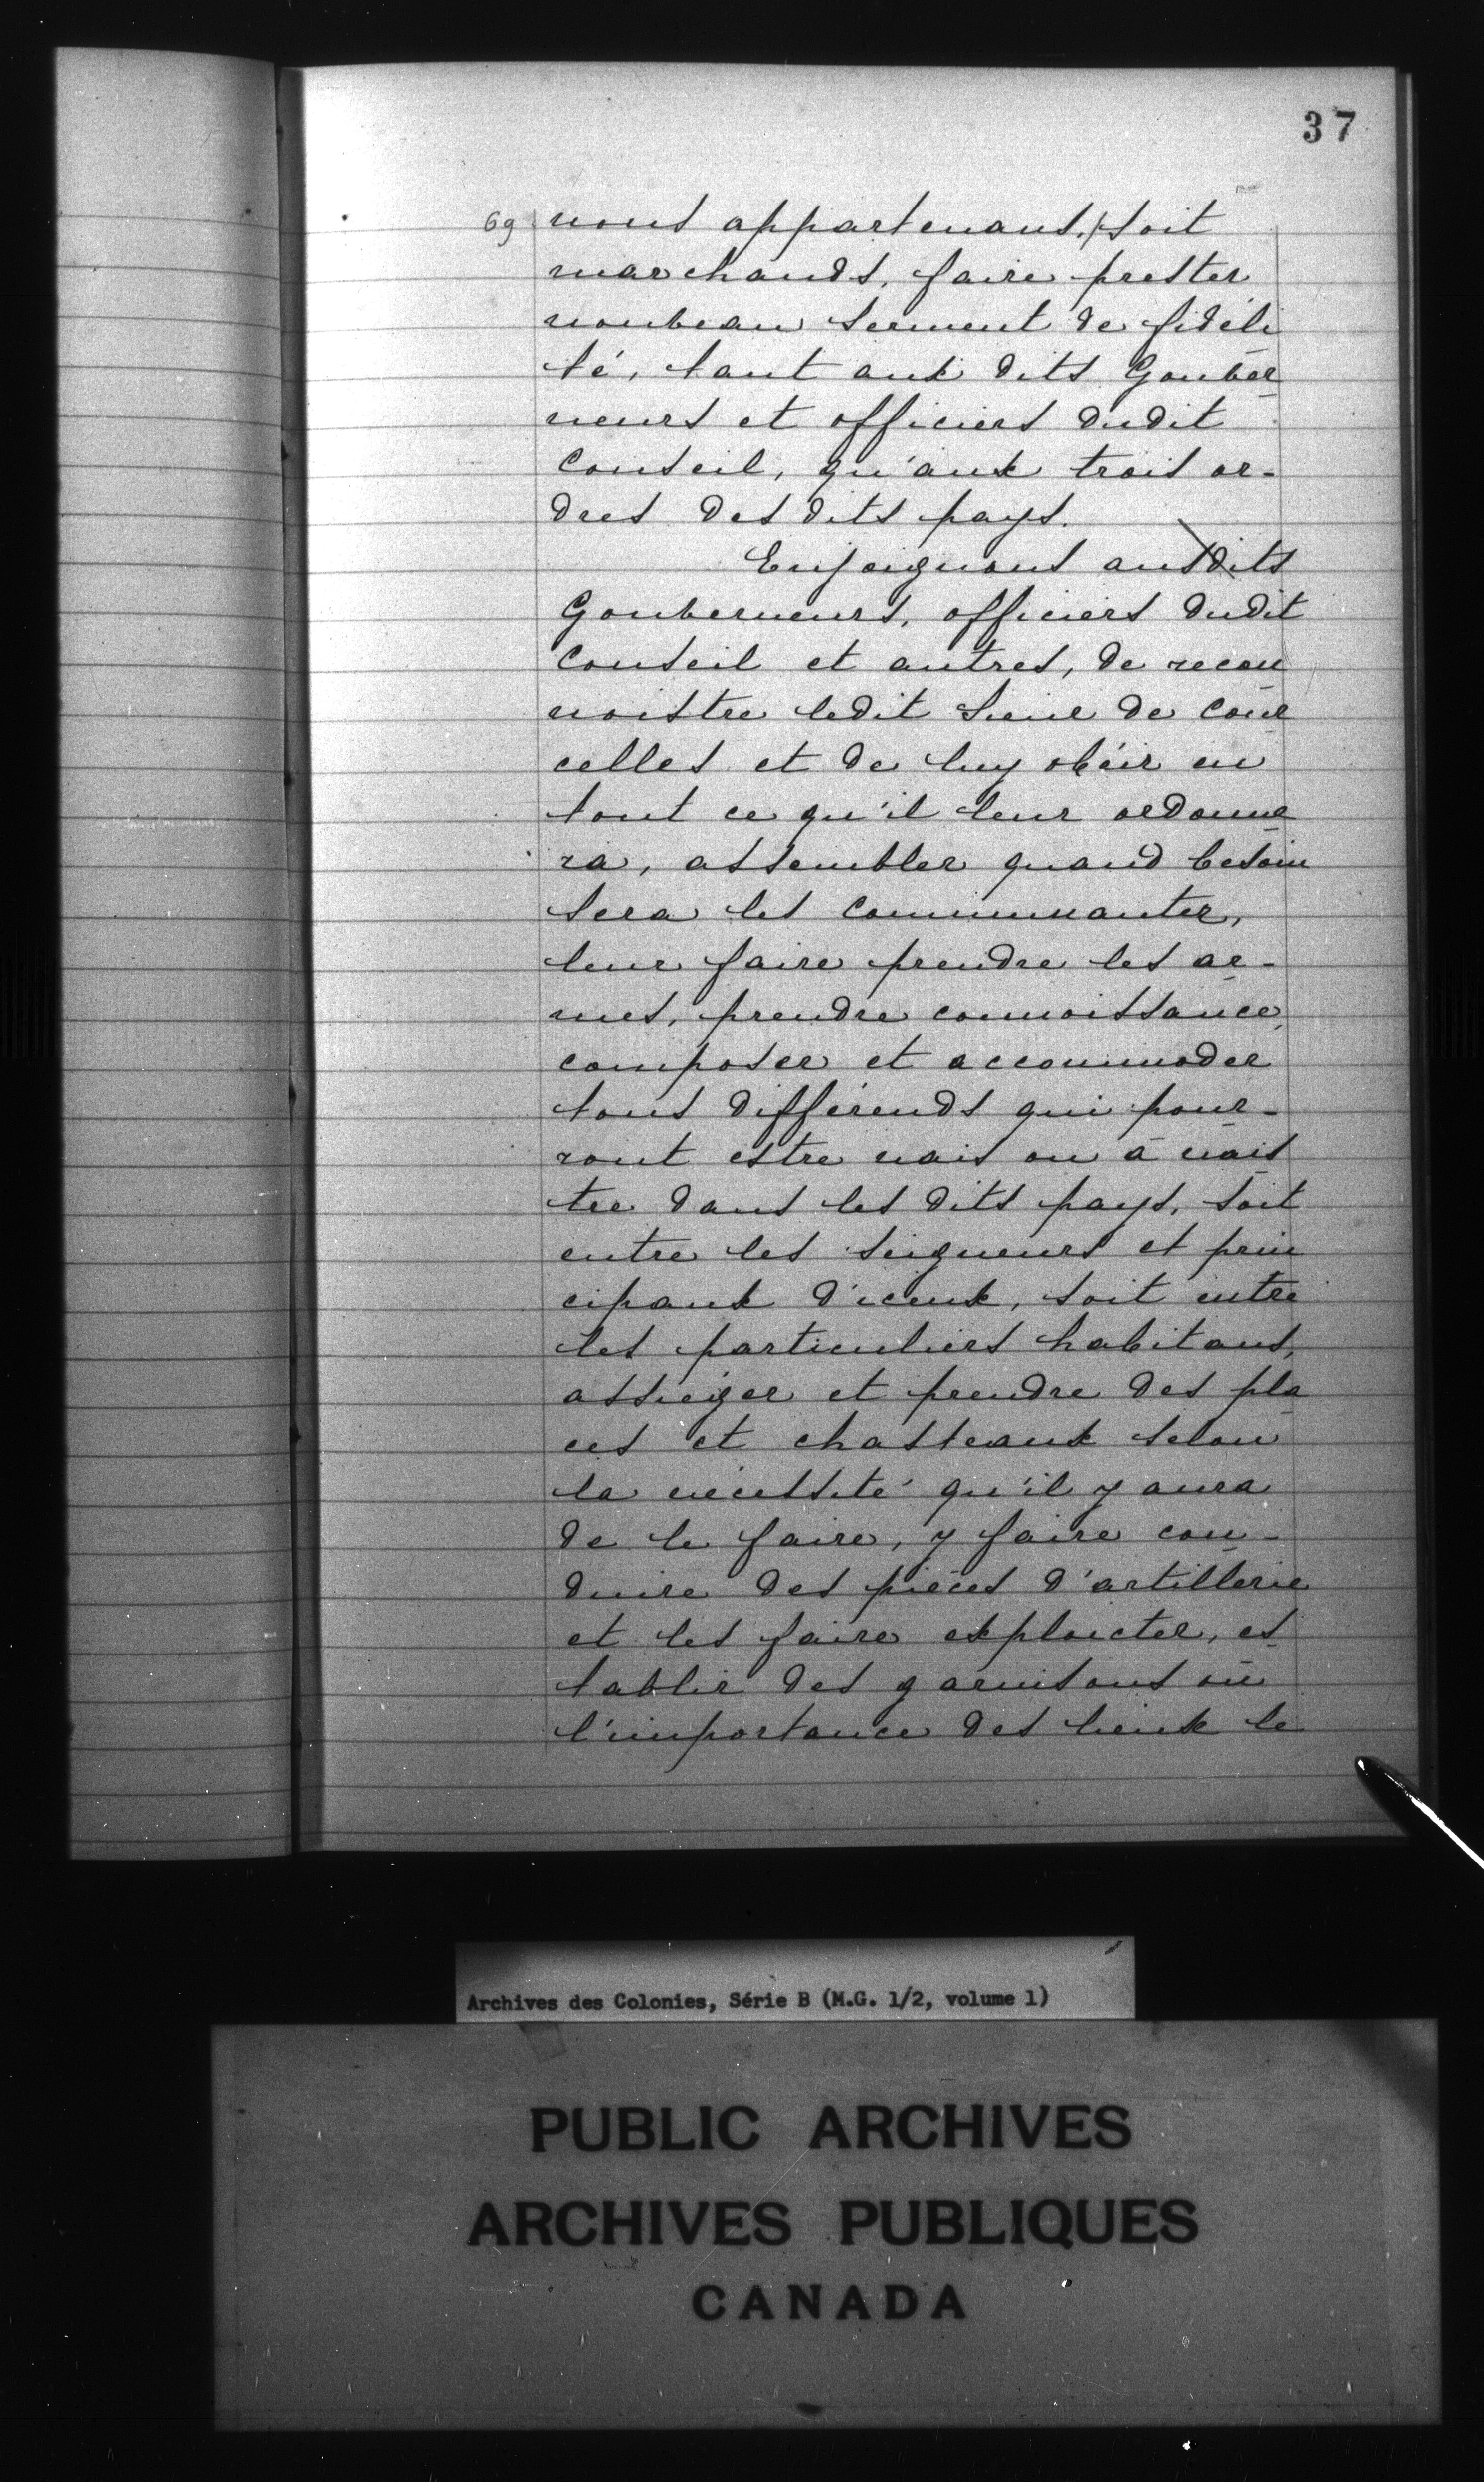 37
69 nous appartenans, / soit
marchands, faire prester
nouveau serment de fidéli
té, tant aux dits Gouver
neurs et officiers dudit
Conseil, qu'aux trois or-
dres des dits pays.
Enjoignons aus dits
Gouverneurs, officiers dudit
Conseil et autres, de recon
noistre ledit Sieur de Cour
celles et de luy obéir en
tout ce qu'il leur ordonne
ra, assembler quand besoin
sera les communautez,
leur faire prendre les ar-
mes, prendre connoissance,
composer et accommoder
tous différends qui pour-
ront estre nais ou à nais
tre dans les dits pays, soit
entre les seigneurs et prin
cipaux d'iceux, soit entre
les particuliers habitans,
assiéger et prendre des pla
ces et chasteaux selon
la nécessité qu'il y aura
de le faire, y faire con-
duire des pièces d'artillerie
et les faire exploicter, es
tablir des garnisons où
l'importance des lieux le
Archives des Colonies, Série B (M.G. 1/2, volume 1)
PUBLIC ARCHIVES
ARCHIVES PUBLIQUES
CANADA